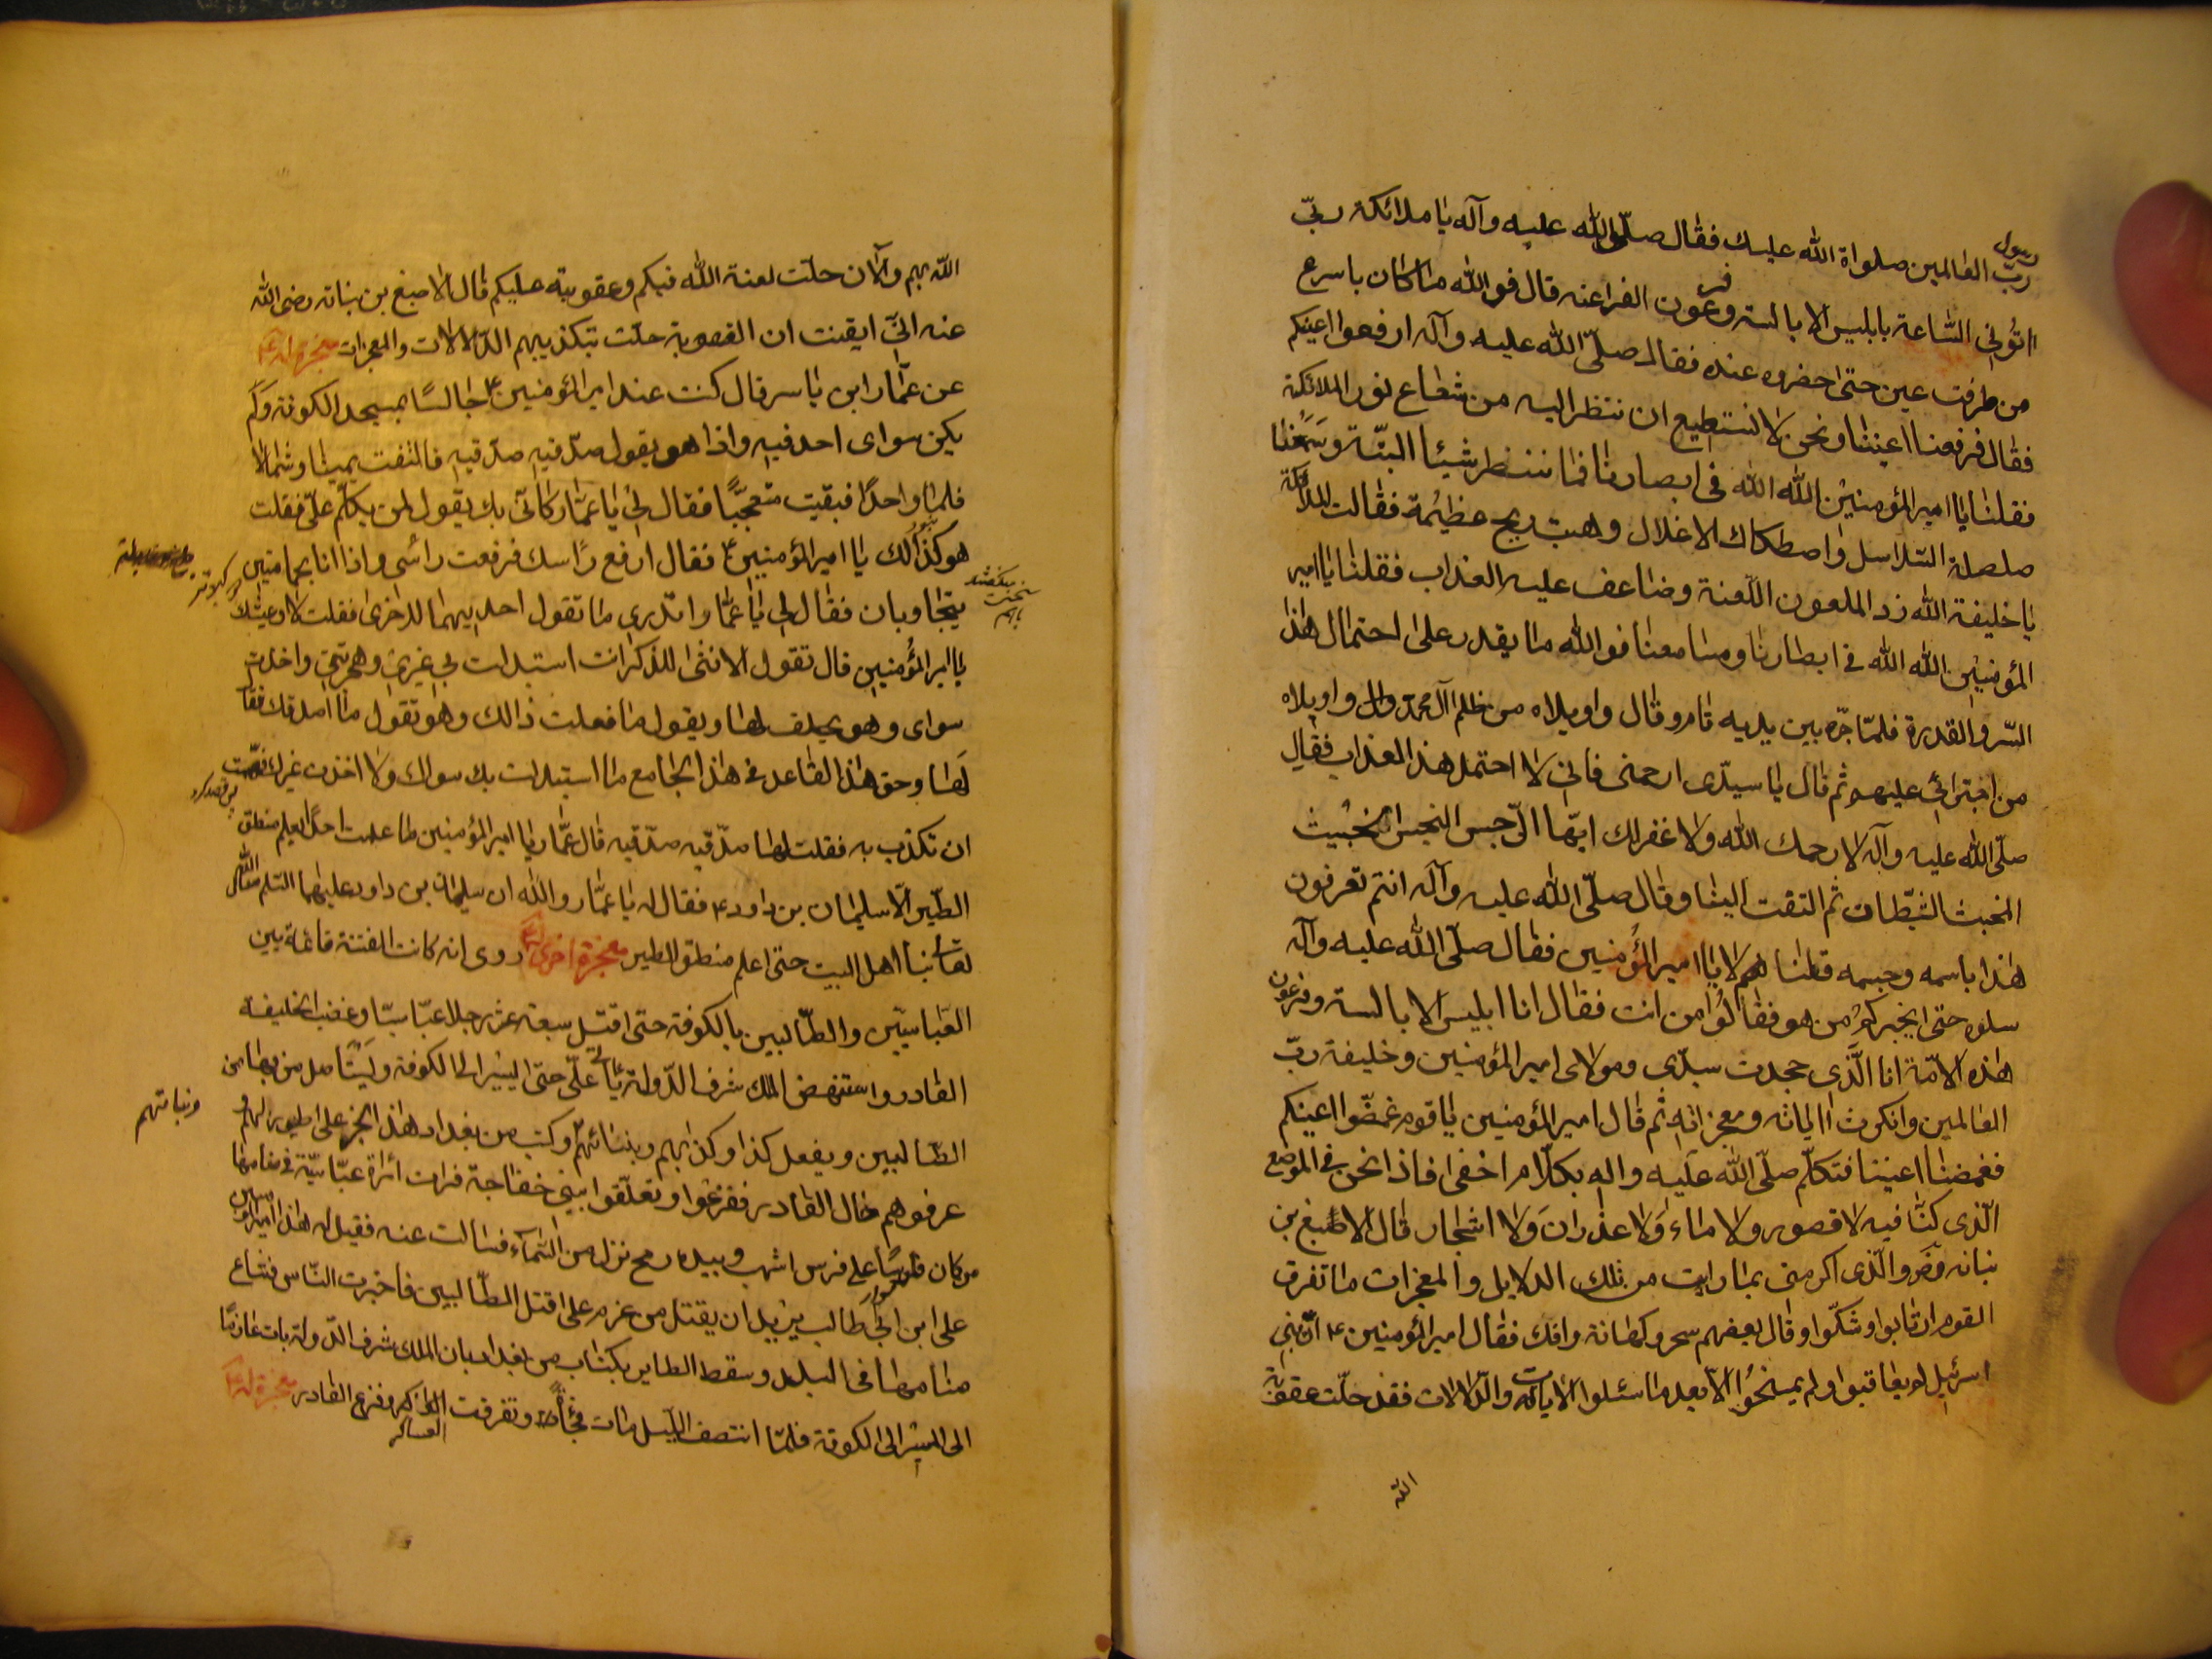 رسول
ربّ العالمين صلواة الله عليك فقال صلّى الله عليه وآله يا ملائكة ربّي
ائتوني الساعة بابليس الابالسة وفرعون الفراعنه قال فو الله ما كان باسرع
من طرفت عين حتى احضروه عنده فقال صلّى الله عليه وآله ارفعوا اعينكم
فقال فرفعنا اعيننا ونحن لا نستطيع ان ننظر اليه من شعاع نور الملائكة
فقلنا يا امير المؤمنين الله الله في ابصارنا فما ننظر شيئا البتّة وسمعنا
صلصلة السّلاسل واصطكاك الاغلال وهبت ريح عظيمة فقالت الملائكة
يا خليفة الله زد الملعون اللّعنة وضاعف عليه العذاب فقلنا يا امير
المؤمنين الله الله في ابصارنا ومسامعنا فو الله ما يقدر على احتمال هذا
السّر والقدرة فلمّا جرّه بين يديه قام وقال واويلاه من ظلم آل محمّد واويلاه
من اجترائي عليهم ثم قال يا سيدّى ارحمنى فانى لا احتمل هذ العذاب فقال
صلّى الله عليه وآله لا رحمك الله ولا غفر لك ايّها الرّجس النجس الخبيث
المخبث الشيطان ثم التفت الينا وقال صلّى الله عليه وآله انتم تعرفون
هذا باسمه وجسمه قلنا نعم يا امير المؤمنين فقال صلّى الله عليه وآله
سلوه حتى يخبركم من هو فقالوا من انت فقال انا ابليس الابالسة وفرعون
هذه الامّة انا الّذى جحدت سيدّى ومولاى امير المؤمنين وخليفة ربّ
العالمين وانكرت اياته ومعجزاته ثم قال امير المؤمنين يا قوم غمضّوا اعينكم
فغمضنا اعيننا فتكلّم صلّى الله عليه واله بكلام اخفى فاذا نحن في الموضع
الّذى كنّا فيه لا قصور ولا ماء ولا غدران ولا اشجار قال الاصبغ بن
نباته رض والّذى اكرمنى بما رايت من تلك الدلايل والمعجزات ما تفرق
القوم ارتابوا وشكّوا وقال بعضهم سحر وكهانة وافك فقال امير المؤمنين ع انّ بني
اسرئيل لم يعاقبوا ولم يمسخوا الّا بعد ما سئلوا الايات والدّلالات فقد حلّت عقوبة
الله
الله بهم والآن حلّت لعنة الله فيكم وعقوبته عليكم قال الاصبغ بن نباته رضى الله
عنه انّي ايقنت ان العقوبة حلّت بتكذيبهم الدّلالات والمعجزات معجزة له ع
عن عمّار ابن ياسر قال كنت عند امير المؤمنين ع جالسًا بمسجد الكوفة ولم
يكن سواى احد فيه واذا هو يقول صدّقيه صدّقيه فالتفت يمينا وشمالا
فلم ار احدًا فبقيت متعجّبًا فقال لى يا عمّار كانّى بك تقول لمن يكلّم علىّ فقلت
هو كذلك يا امير المؤمنين ع فقال ارفع راسك فرفعت رأسى واذا انا بحمامتين
يتجاوبان فقال لى يا عمّار اتدرى ما تقول احديهما للاخرى فقلت لا وعيشك
يا امير المؤمنين قال تقول الانثى للذكر انت استبدلت بى غيرى وهجرتنى واخذت
سواى وهو يحلف لها ويقول ما فعلت ذالك وهو تقول ما اصدقك فقال
لها وحق هذا القاعد فى هذا الجامع ما استبدلت بك سواك ولا اخذت غيرك فهمّت
ان تكذب به فقلت لها صدّقيه صدّقيه قال عمّار يا امير المؤمنين ما علمت احدًا يعلم منطق
الطّير الّا سليمان بن داود ع فقال له يا عمّار والله ان سليمان بن داود عليهما السّلم سئل الله
تعالى بنا اهل البيت حتى اعلم منطق الطير معجزة اخرى له ع روى انه كانت الفتنة قائمة بين
العباسيّين والطّالبين بالكوفة حتى اقتل سبعة عشر رجلا عبّاسيّا وغضب الخليفة
القادر واستنهض الملك شرف الدّولة علىّ حتى اليسير الى الكوفة وليستاصل من بها من
الطّالبيين ويفعل كذا وكذا بهم وبنسائهم وكتب من بغداد هذا الخبر على طيور لهم و
عرفوهم ما قال القادر ففزعوا وتعلّقوا ببنى خفاجة فرات امراة عبّاسيّة فى منامها
من كان فارسًا على فرس اشهب وبيده رمح نزل من السّماء فسالت عنه فقيل له هذا امير المؤمنين
على ابن ابي طالب يريد ان يقتل من عزم على اقتل الطّالبين فاخبرت النّاس فشاع
منامها فى البلد وسقط الطاير بكتاب من بغداد بان الملك شرف الدّولة بات عازمًا
الى المسير الى الكوفة فلمّا انتصف الليل مات فجأة وتفرقت العساكر وفزع القادر معجزة له ع
العساكر
سخن ميكفتند
باهم
وبناتهم
پس قصد كرد